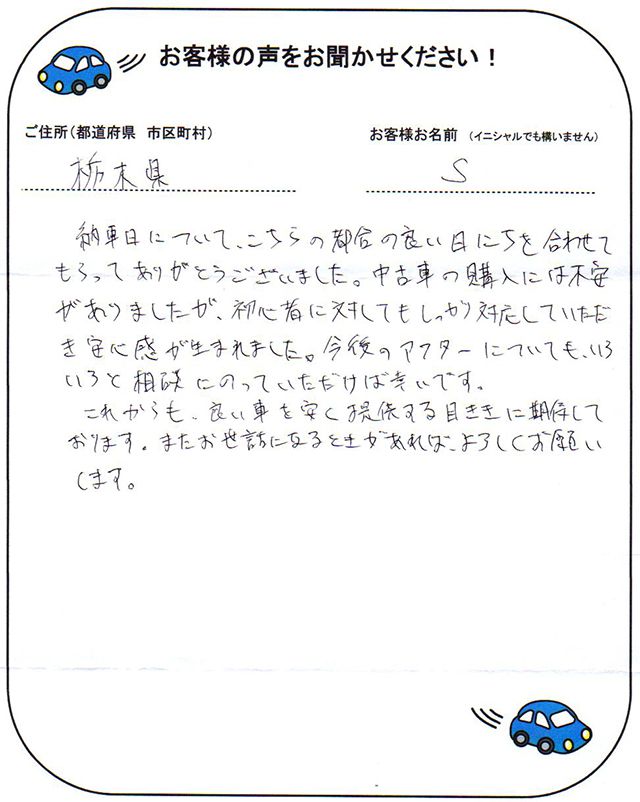 お客様の声をお聞かせください！
ご住所（都道府県　市区町村）
お客様お名前　（イニシャルでも構いません）
栃木県
S
納車日について、こちらの都合の良い日にちを合わせて
もらってありがとうございました。中古車の購入には不安
がありましたが、初心者に対してもしっかり対応していただ
き安心感が生まれました。今後のアフターについても、いろ
いろと相談にのっていただけば幸いです。
これからも、良い車を安く提供する目ききに期待して
おります。またお世話になるときがあれば、よろしくお願い
します。